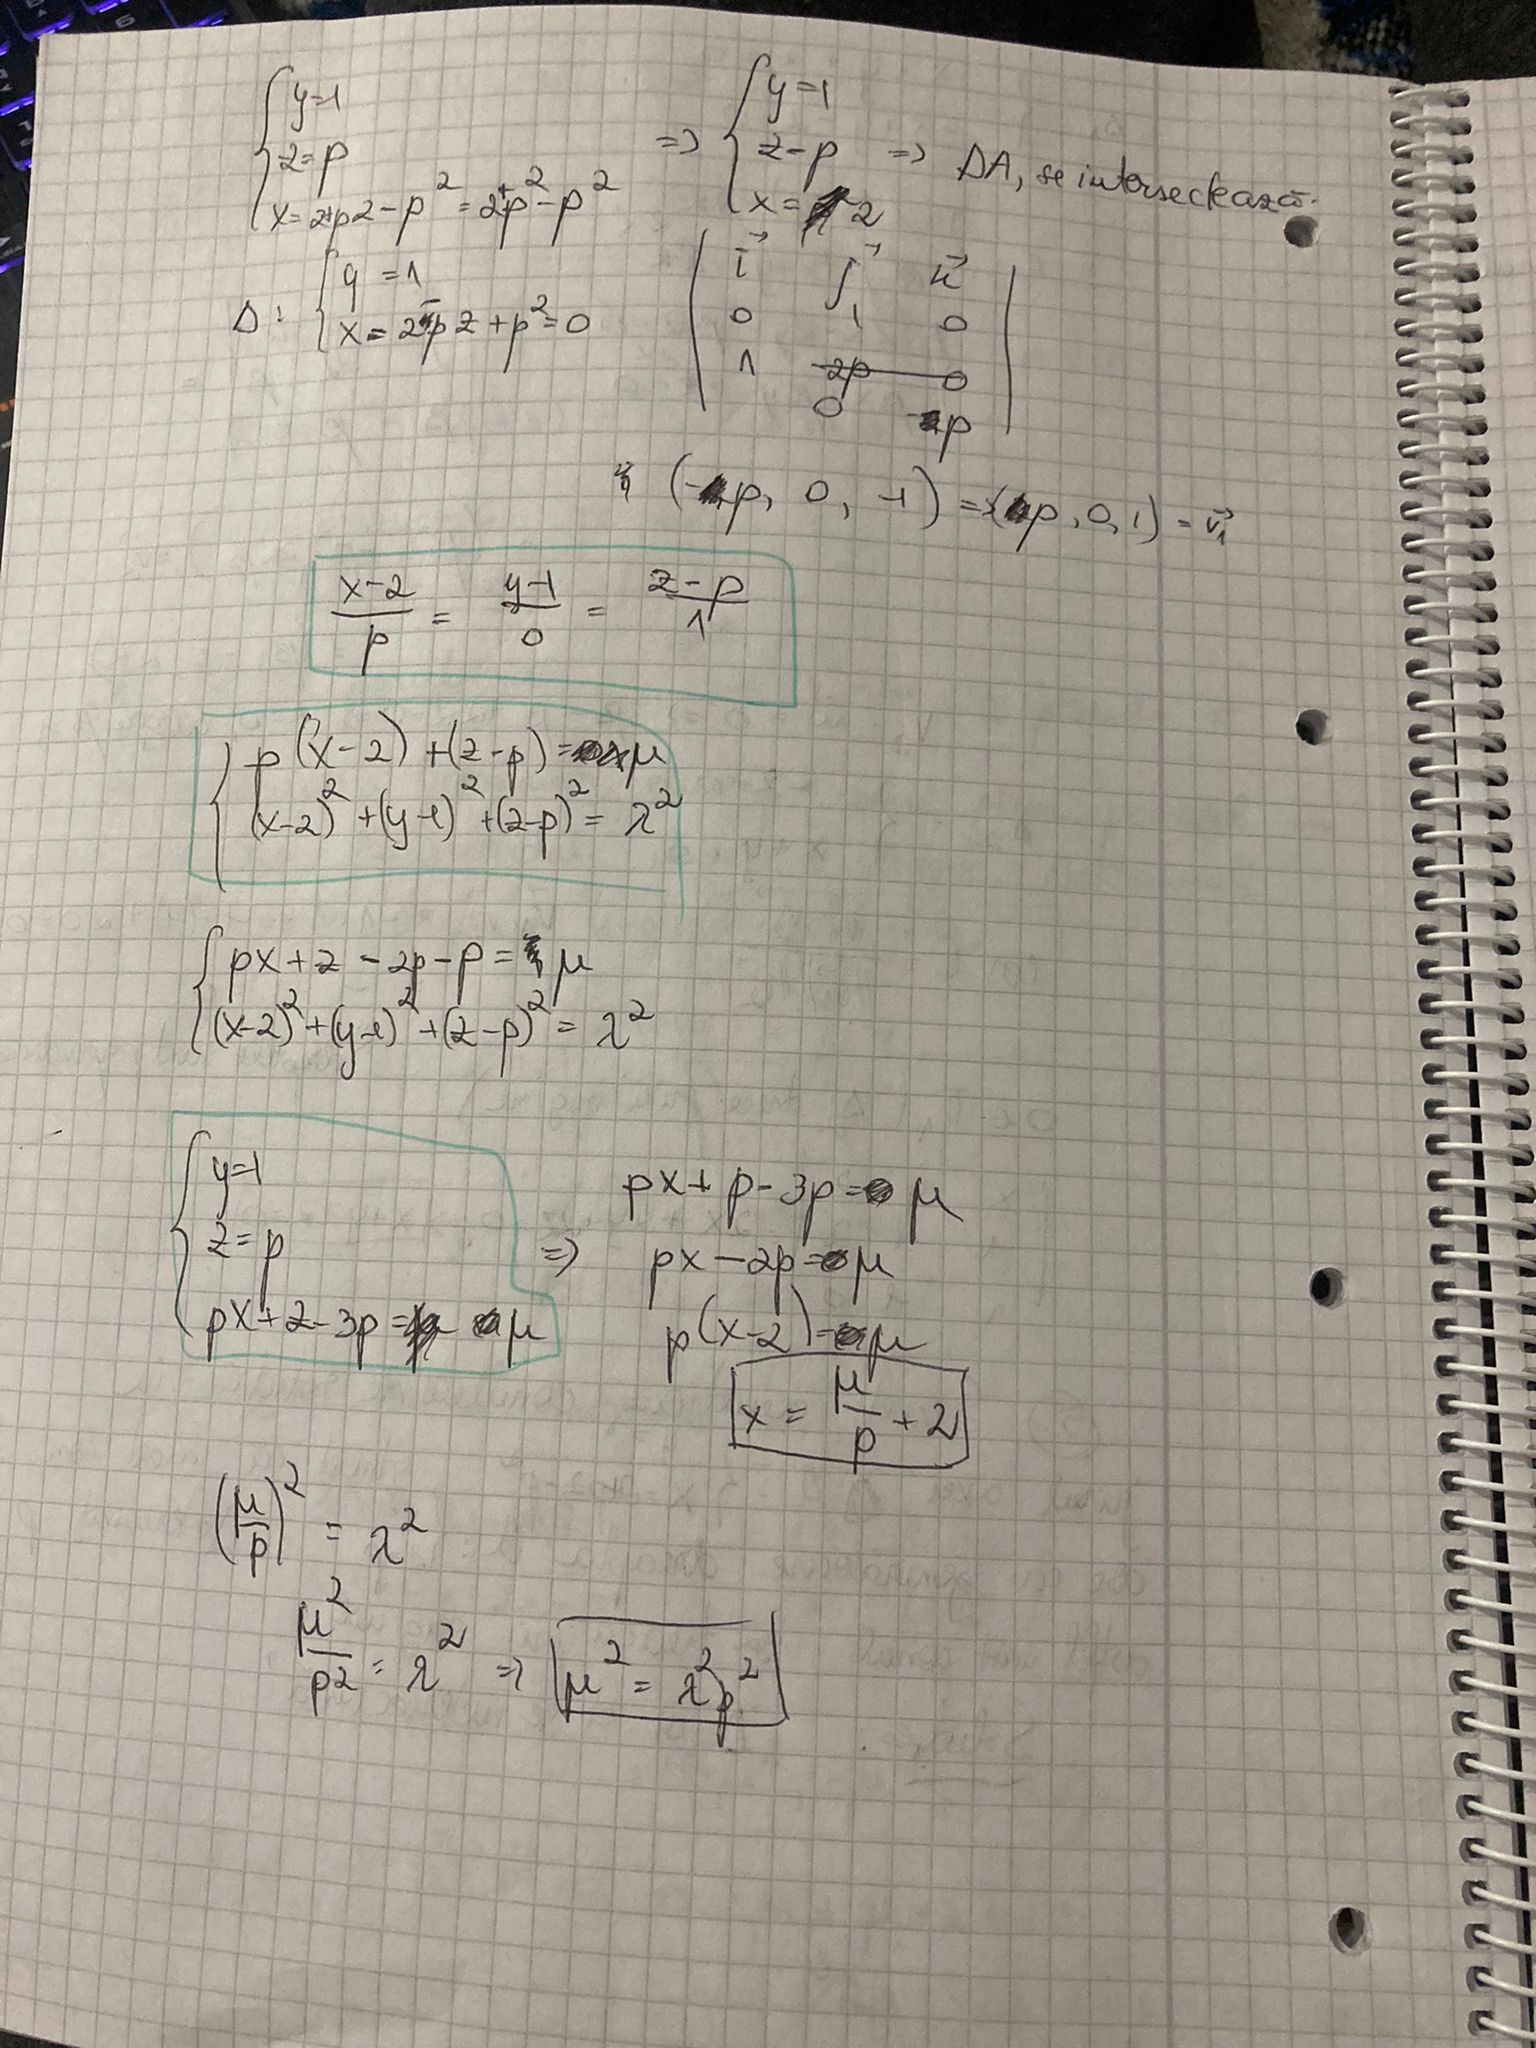 { y=1
z=p
x=2+pz-p² = 2+p²-p²
=> { y=1
z-p => DA, se intersectează.
x=2
Δ: { y=1
x-2-pz+p²=0
| i⃗ j⃗ k⃗ |
0 1 0
1 -2p 0
0 -p
(-p, 0, -1) = (p, 0, 1) = v⃗₁
(x-2)/p = (y-1)/0 = (z-p)/1
{ p(x-2)+(z-p)=μ
(x-2)²+(y-1)²+(z-p)²=λ²
{ px+z-2p-p=μ
(x-2)²+(y-1)²+(z-p)²=λ²
{ y=1
z=p
px+z-3p=μ
=> px+p-3p=μ
px-2p=μ
p(x-2)=μ
x = μ/p + 2
(μ/p)² = λ²
μ²/p² = λ² => μ² = λ²p²